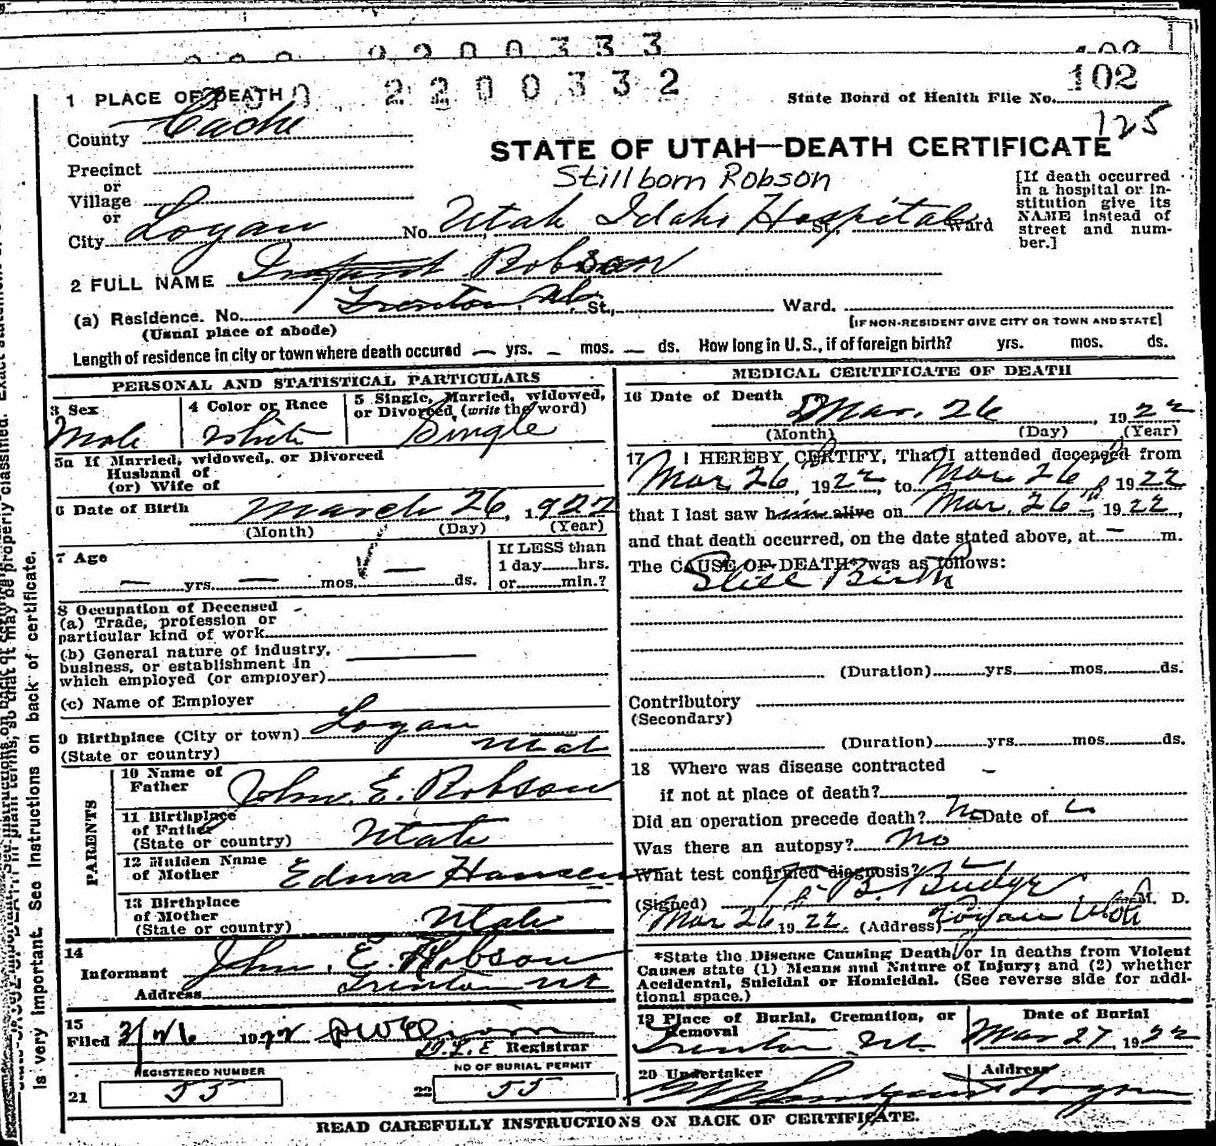 2200333
102
1 PLACE OF DEATH 2200332
State Board of Health File No. 102
125
County Cache
STATE OF UTAH—DEATH CERTIFICATE
Precinct
or
Village
or
City Logan No. Utah Idaho Hospital St., Ward
Stillborn Robson
[If death occurred in a hospital or institution give its NAME instead of street and number.]
2 FULL NAME Infant Robson
(a) Residence. No. Trenton, Ut. St., Ward.
(Usual place of abode) [IF NON-RESIDENT GIVE CITY OR TOWN AND STATE]
Length of residence in city or town where death occured — yrs. — mos. — ds. How long in U.S., if of foreign birth? yrs. mos. ds.
PERSONAL AND STATISTICAL PARTICULARS
3 Sex Male
4 Color or Race White
5 Single, Married, widowed, or Divorced (write the word) Single
5a If Married, widowed, or Divorced
Husband of
(or) Wife of
6 Date of Birth March 26, 1922
(Month) (Day) (Year)
7 Age — yrs. — mos. — ds.
If LESS than
1 day hrs.
or min.?
8 Occupation of Deceased
(a) Trade, profession or
particular kind of work
(b) General nature of industry,
business, or establishment in
which employed (or employer)
(c) Name of Employer
9 Birthplace (City or town) Logan
(State or country) Utah
PARENTS
10 Name of Father John E. Robson
11 Birthplace of Father (State or country) Utah
12 Maiden Name of Mother Edna Hansen
13 Birthplace of Mother (State or country) Utah
14
Informant John E. Robson
Address Trenton Ut
15
Filed 3/26 1922
Registrar
REGISTERED NUMBER
21 55
NO OF BURIAL PERMIT
22 55
MEDICAL CERTIFICATE OF DEATH
16 Date of Death Mar. 26, 1922
(Month) (Day) (Year)
17 I HEREBY CERTIFY, That I attended deceased from
Mar 26, 1922, to Mar 26, 1922
that I last saw him alive on Mar. 26, 1922,
and that death occurred, on the date stated above, at — m.
The CAUSE OF DEATH* was as follows:
Still Birth
(Duration) yrs. mos. ds.
Contributory
(Secondary)
(Duration) yrs. mos. ds.
18 Where was disease contracted
if not at place of death? —
Did an operation precede death? No Date of
Was there an autopsy? No
What test confirmed diagnosis?
(Signed) B. Budge M. D.
Mar 26 1922. (Address) Logan Utah
*State the Disease Causing Death, or in deaths from Violent
Causes state (1) Means and Nature of Injury; and (2) whether
Accidental, Suicidal or Homicidal. (See reverse side for additional space.)
19 Place of Burial, Cremation, or Removal Trenton Ut.
Date of Burial Mar 27, 1922
20 Undertaker
Address Logan
READ CAREFULLY INSTRUCTIONS ON BACK OF CERTIFICATE.
is very important. See Instructions on back of certificate.